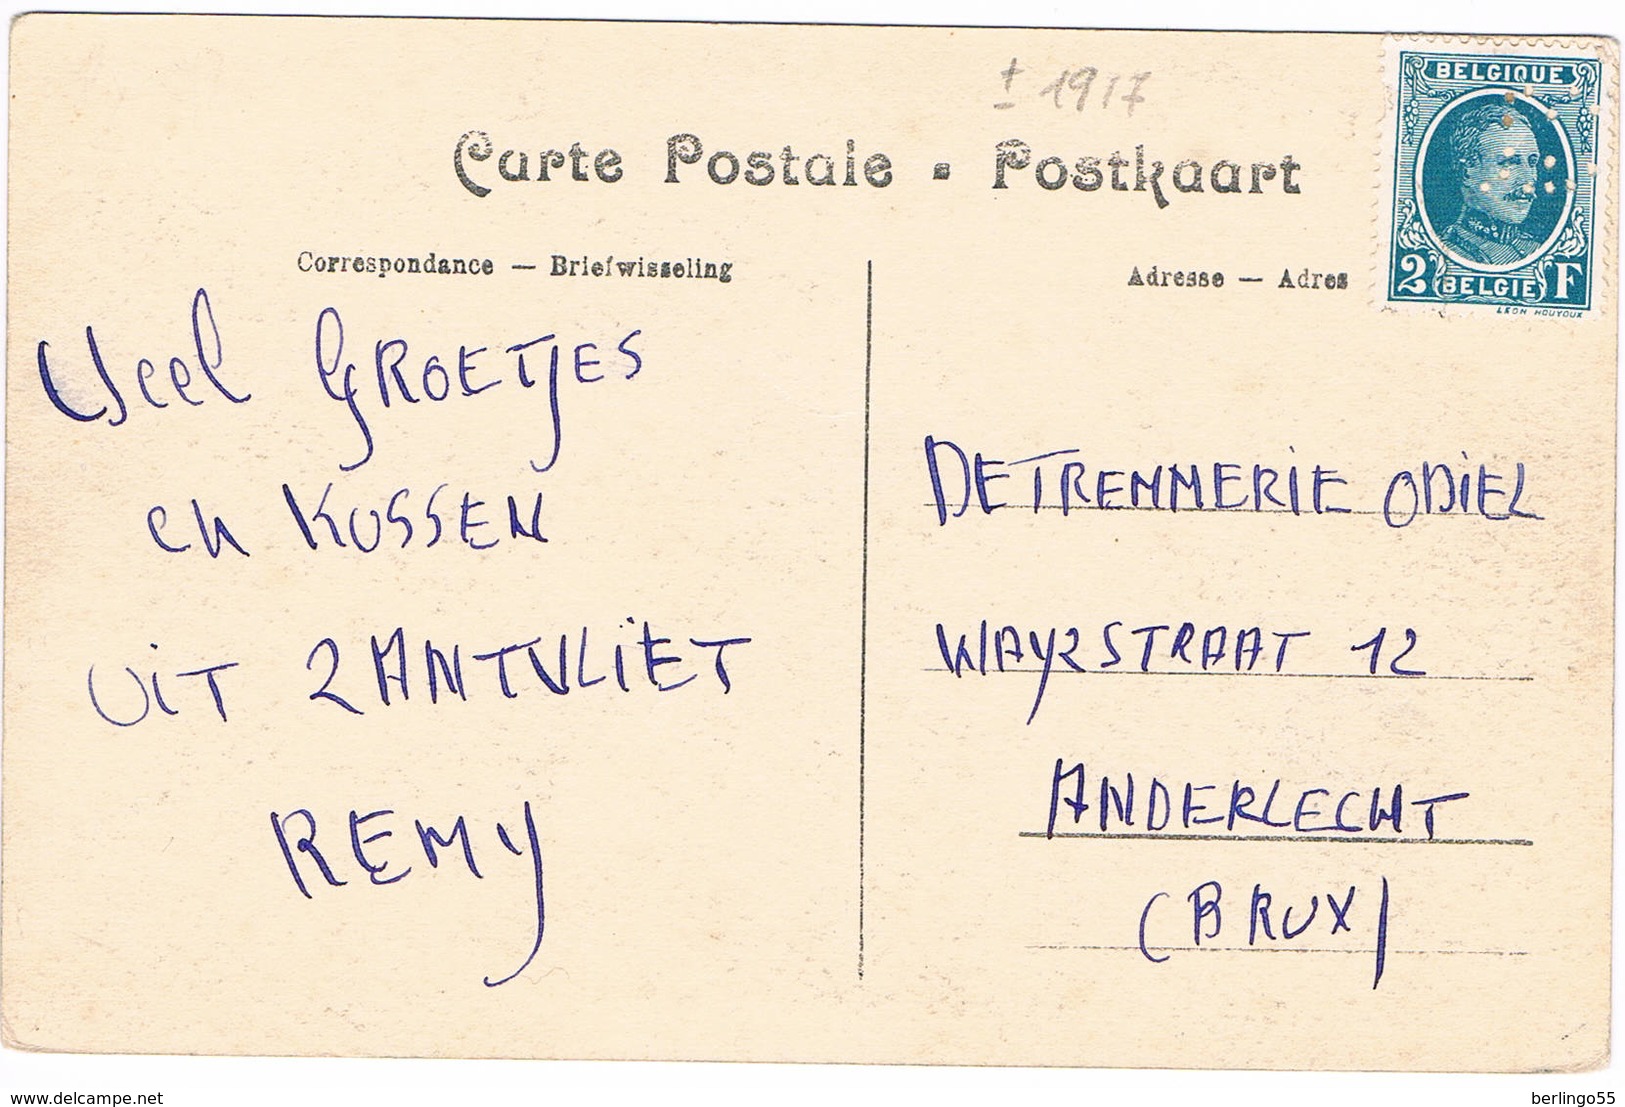 ± 1917
Carte Postale - Postkaart
Correspondance — Briefwisseling
Adresse — Adres
BELGIQUE
2 BELGIE F
LEON HOUYOUX
Veel GROETJES
en KUSSEN
UIT ZANTVLIET
REMY
DETREMMERIE ODIEL
WAYZSTRAAT 12
ANDERLECHT
(BRUX)
www.delcampe.net
berlingo55